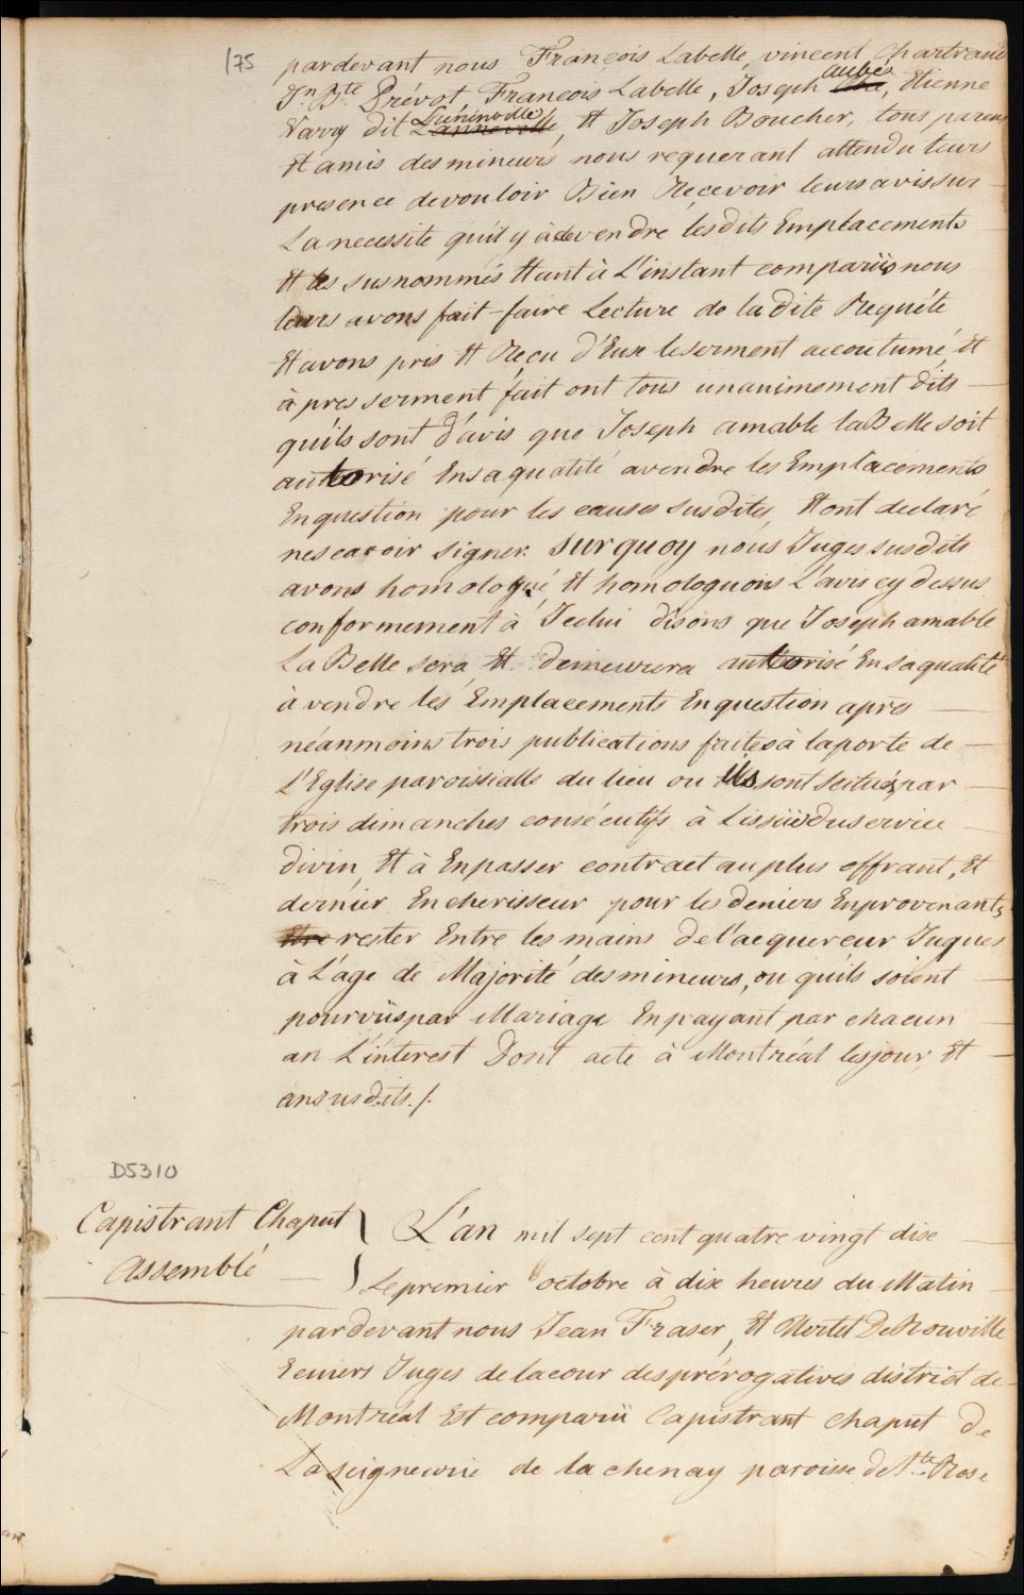 175
pardevant nous François Labelle, vincent Chartrand
Jn. Bte Prévot François Labelle, Joseph aubés, Etienne
Varry dit Luninville, Et Joseph Boucher, tous parens
Et amis des mineurs nous requerant attendu leurs
presence de vouloir Bien Recevoir leurs avis sur
La necessité qu'il y à de vendre les dits Emplacements
Et les susnommés Etant à L'instant comparüs nous
leurs avons fait-faire Lecture de la dite Requéte
Et avons pris Et Reçu d'Eux le serment accoutumé, Et
à pres serment fait ont tous unanimement dits
quils sont d'avis que Joseph amable laBelle soit
autorisé En sa qualité a vendre les Emplacements
En question pour les causes susdites, Et ont declaré
ne scavoir signer. Surquoy nous Juges susdits
avons homologué, Et homologuons L'avis cy dessus
conformement à Jcelui disons que Joseph amable
LaBelle sera Et demeurera autorisé En sa qualité
à vendre les Emplacements En question après
néanmoins trois publications faites à la porte de
L'Eglise paroissialle du lieu ou ils sont scitués par
trois dimanches consécutifs à Lissüe du service
divin, Et à En passer contract au plus offrant, Et
dernier Encherisseur pour les deniers En provenants
rester Entre les mains de l'acquereur Juques
à L'age de Majorité des mineurs, ou quils soient
pourvüs par Mariage En payant par chacun
an L'interest Dont acte à Montréal les jour, Et
an susdits./.
D5310
Capistrant Chaput
Assemblé
L'an mil sept cent quatre vingt dise
Le premier octobre à dix heures du Matin
pardevant nous Jean Fraser, Et Hertel De Rouville
Ecuiers Juges de la cour des prérogatives district de
Montréal Est comparü Capistrant chaput de
La seigneurie de la chenay paroisse de Ste Rose